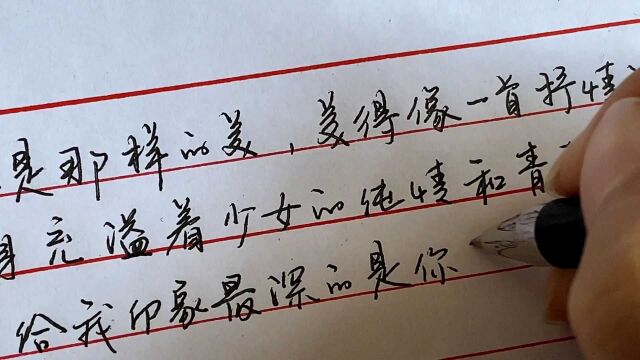 是那样的美，美得像一首抒情
身充溢着少女的纯情和青
给我印象最深的是你